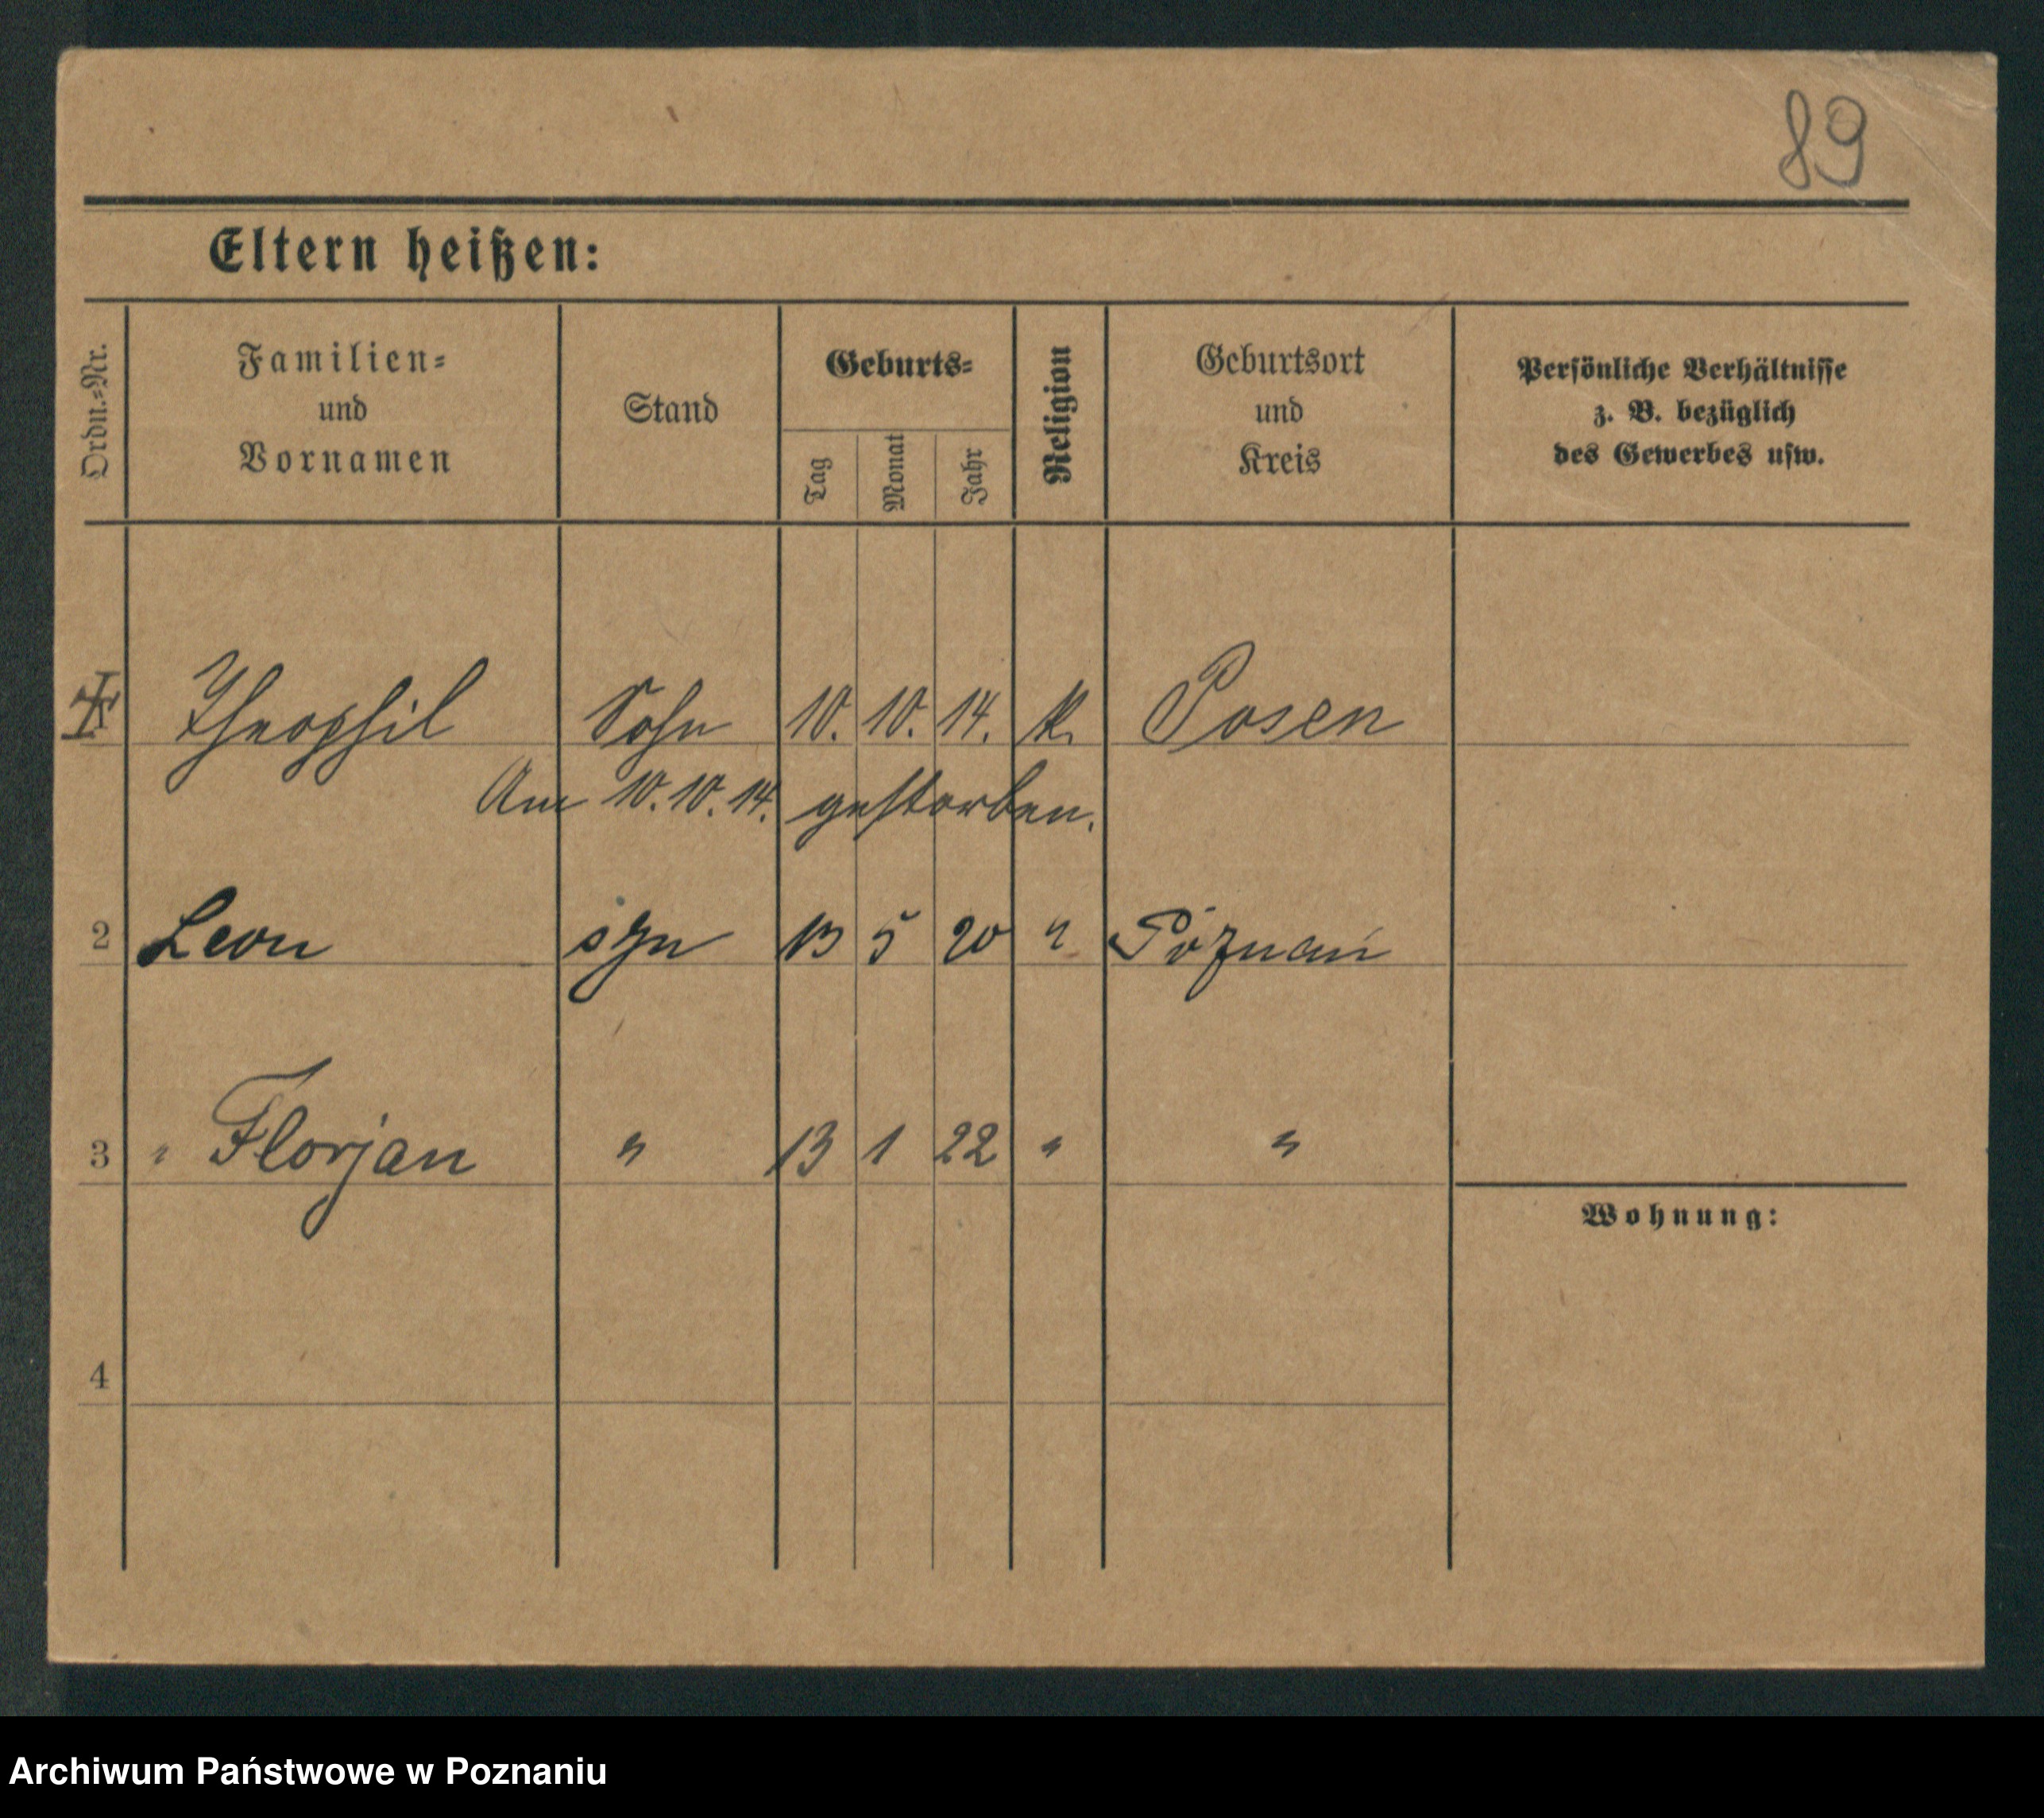 89
Eltern heißen:
Ordn.-Nr.
Familien-
und
Vornamen
Stand
Geburts-
Tag
Monat
Jahr
Religion
Geburtsort
und
Kreis
Persönliche Verhältnisse
z. B. bezüglich
des Gewerbes usw.
Theophil Sohn 10. 10. 14. k. Posen
Am 10.10.14. gestorben.
2 Leon syn 13 5 20 " Poznań
3 " Florjan " 13 1 22 " "
Wohnung:
4
Archiwum Państwowe w Poznaniu